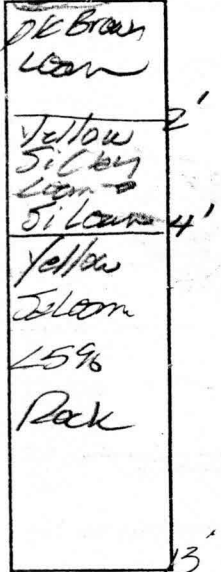 DK Brown
Loam
2'
Yellow
Si Clay
Loam →
Si Loam 4'
Yellow
Loam
<5%
Rock
13'